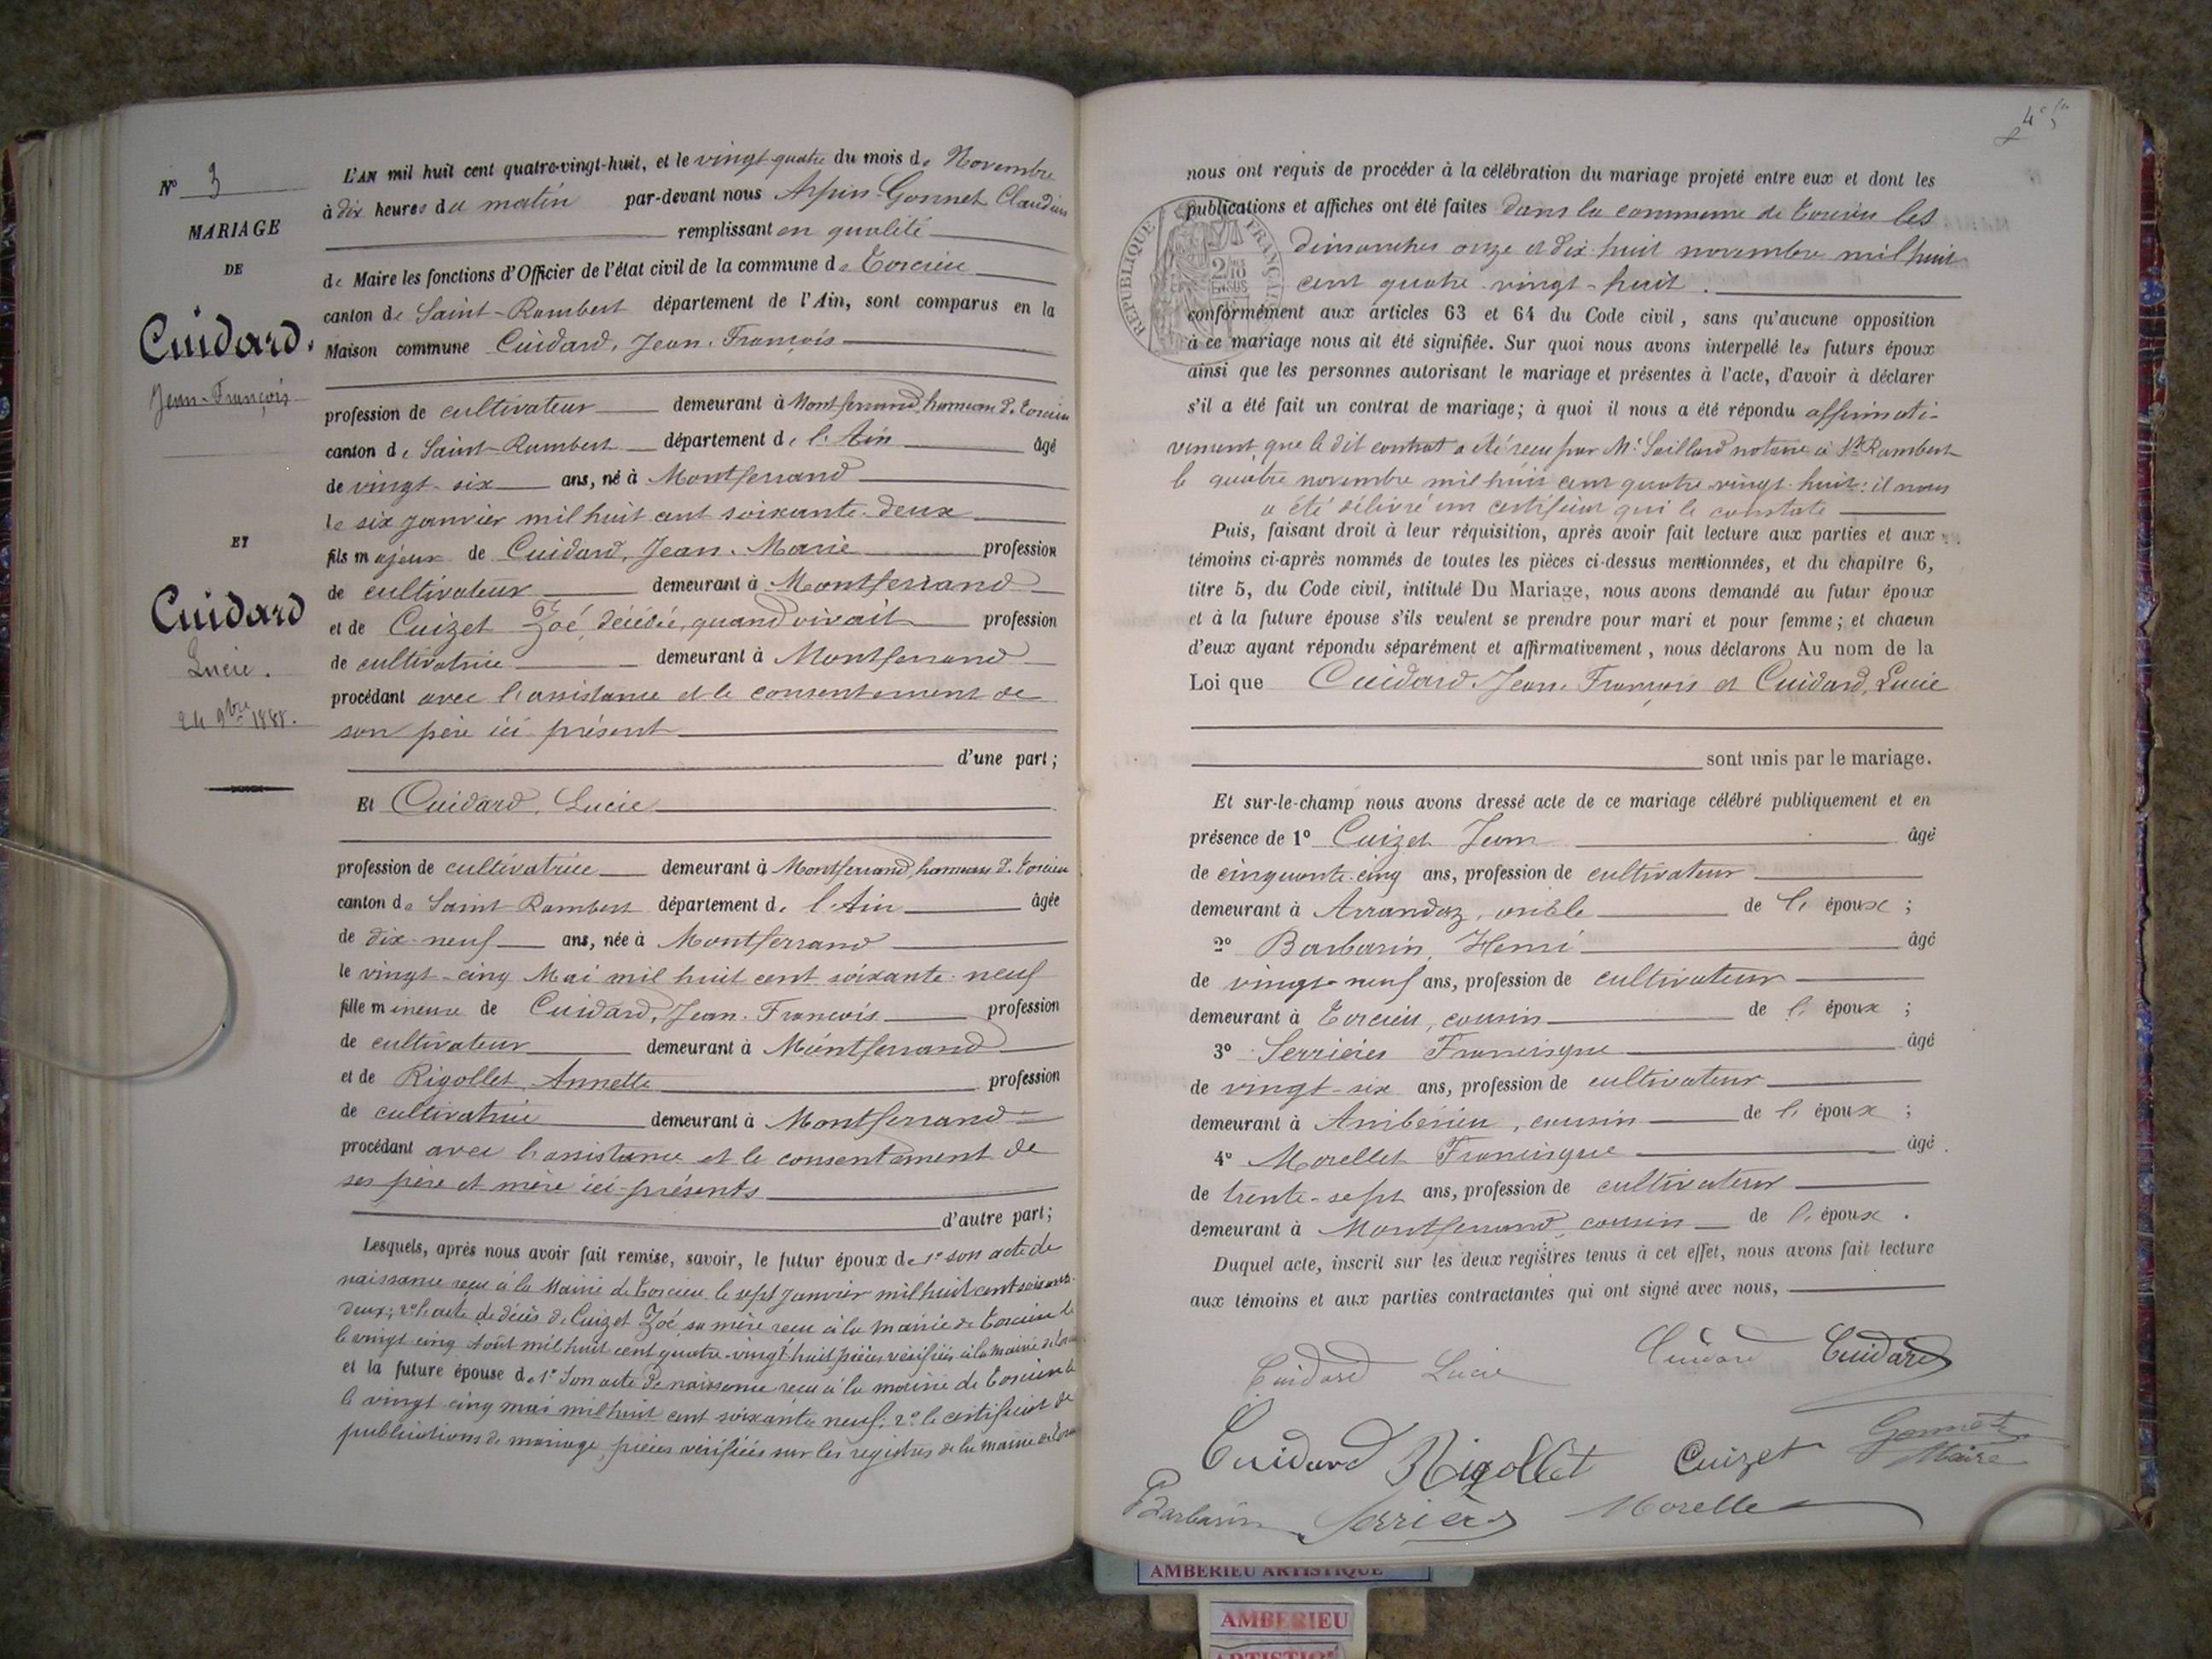 N° 3
MARIAGE
DE
Cuidard.
Jean-François
ET
Cuidard
Lucie.
24 9bre 1888.
L'AN mil huit cent quatre-vingt-huit, et le vingt-quatre du mois de Novembre
à dix heures du matin par-devant nous Arpin-Gonnet Claudius
remplissant en qualité
de Maire les fonctions d'Officier de l'état civil de la commune de Torcieu
canton de Saint-Rambert département de l'Ain, sont comparus en la
Maison commune Cuidard, Jean-François
profession de cultivateur demeurant à Montferrand, hameau de Torcieu
canton de Saint-Rambert département de l'Ain âgé
de vingt-six ans, né à Montferrand
le six janvier mil huit cent soixante-deux
fils majeur de Cuidard, Jean-Marie profession
de cultivateur demeurant à Montferrand
et de Cuizet Zoé, décédée, quand vivait profession
de cultivatrice demeurant à Montferrand
procédant avec l'assistance et le consentement de
son père ici présent
d'une part;
Et Cuidard, Lucie
profession de cultivatrice demeurant à Montferrand, hameau de Torcieu
canton de Saint-Rambert département de l'Ain âgée
de dix-neuf ans, née à Montferrand
le vingt-cinq Mai mil huit cent soixante-neuf
fille mineure de Cuidard, Jean-François profession
de cultivateur demeurant à Montferrand
et de Rigollet, Annette profession
de cultivatrice demeurant à Montferrand
procédant avec l'assistance et le consentement de
ses père et mère ici présents
d'autre part;
Lesquels, après nous avoir fait remise, savoir, le futur époux de 1° son acte de
naissance reçu à la Mairie de Torcieu le sept janvier mil huit cent soixante-
deux; 2° l'acte de décès de Cuizet Zoé sa mère reçu à la mairie de Torcieu le
le vingt cinq Août mil huit cent quatre-vingt-huit pièces vérifiées à la mairie de
et la future épouse de 1° Son acte de naissance reçu à la mairie de Torcieu le
le vingt-cinq mai mil huit cent soixante neuf: 2° le certificat de
publications de mariage, pièces vérifiées sur les registres de la mairie de
nous ont requis de procéder à la célébration du mariage projeté entre eux et dont les
publications et affiches ont été faites dans la commune de Torcieu les
dimanches onze et dix-huit novembre mil huit
cent quatre-vingt-huit.
RÉPUBLIQUE FRANÇAISE
conformément aux articles 63 et 64 du Code civil, sans qu'aucune opposition
à ce mariage nous ait été signifiée. Sur quoi nous avons interpellé les futurs époux
ainsi que les personnes autorisant le mariage et présentes à l'acte, d'avoir à déclarer
s'il a été fait un contrat de mariage; à quoi il nous a été répondu affirmati-
vement que le dit contrat a été reçu par Me Saillard notaire à St Rambert
le quatre novembre mil huit cent quatre-vingt-huit: il nous
a été délivré un certificat qui le constate
Puis, faisant droit à leur réquisition, après avoir fait lecture aux parties et aux
témoins ci-après nommés de toutes les pièces ci-dessus mentionnées, et du chapitre 6,
titre 5, du Code civil, intitulé Du Mariage, nous avons demandé au futur époux
et à la future épouse s'ils veulent se prendre pour mari et pour femme; et chacun
d'eux ayant répondu séparément et affirmativement, nous déclarons Au nom de la
Loi que Cuidard, Jean-François et Cuidard, Lucie
sont unis par le mariage.
Et sur-le-champ nous avons dressé acte de ce mariage célébré publiquement et en
présence de 1° Cuizet Jean âgé
de cinquante-cinq ans, profession de cultivateur
demeurant à Arrandaz, oncle de l' époux;
2° Barbarin, Henri âgé
de vingt-neuf ans, profession de cultivateur
demeurant à Torcieu, cousin de l' époux;
3° Serrières Francisque âgé
de vingt-six ans, profession de cultivateur
demeurant à Ambérieu, cousin de l' époux;
4° Morellet Francisque âgé.
de trente-sept ans, profession de cultivateur
demeurant à Montferrand, cousin de l' époux.
Duquel acte, inscrit sur les deux registres tenus à cet effet, nous avons fait lecture
aux témoins et aux parties contractantes qui ont signé avec nous,
Cuidard Lucie Cuidard Cuidard
Cuidard Rigollet Cuizet Gonnet
Maire
Barbarin Serrières Morellet
AMBERIEU ARTISTIQUE
AMBERIEU
ARTISTIQUE